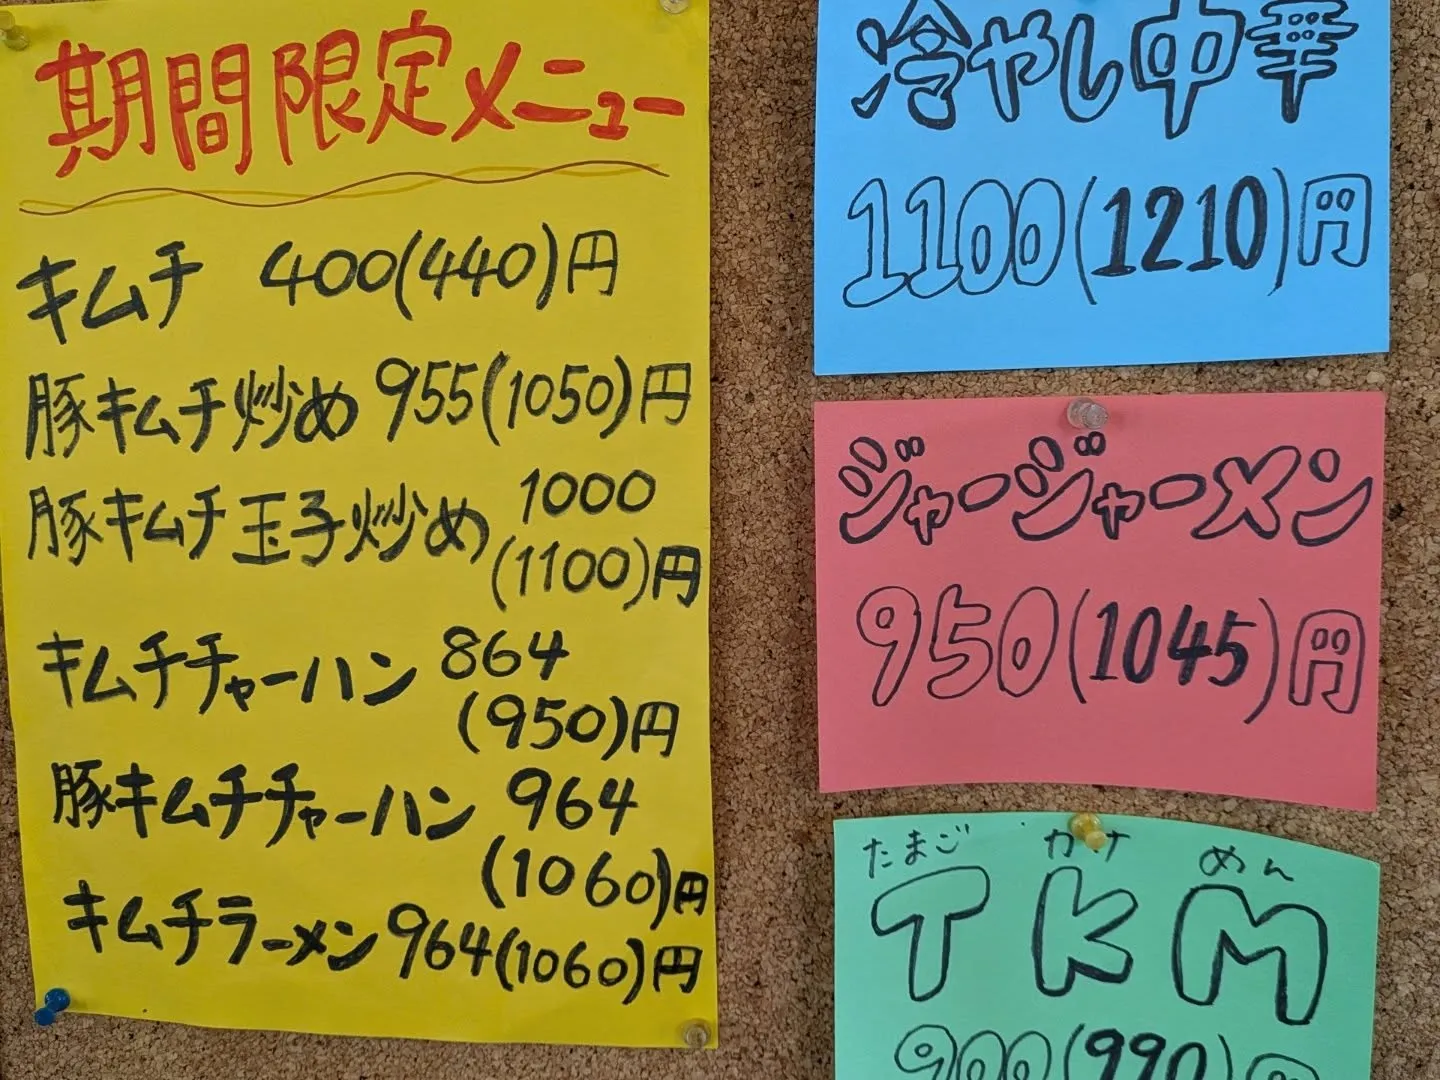 期間限定メニュー
キムチ 400(440)円
豚キムチ炒め 955(1050)円
豚キムチ玉子炒め 1000
(1100)円
キムチチャーハン 864
(950)円
豚キムチチャーハン 964
(1060)円
キムチラーメン 964(1060)円
冷やし中華
1100(1210)円
ジャージャーメン
950(1045)円
たまご かけ めん
TKM
900(990)円